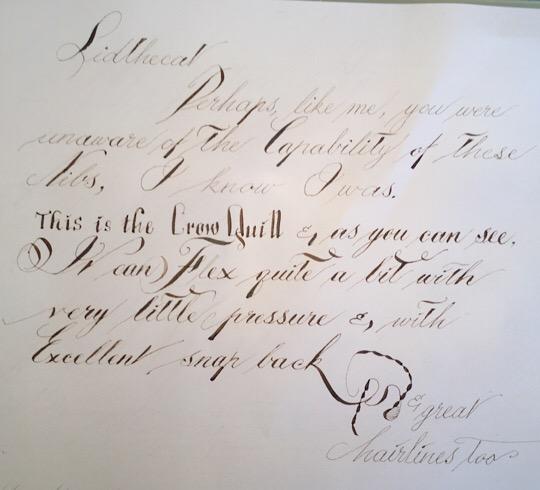 Lidthecat
Perhaps, like me, you were
unaware of the Capability of these
Nibs, I know I was.
This is the Crow Quill &, as you can see,
It can Flex quite a bit with
very little pressure &, with
Excellent snap back
& great
hairlines too